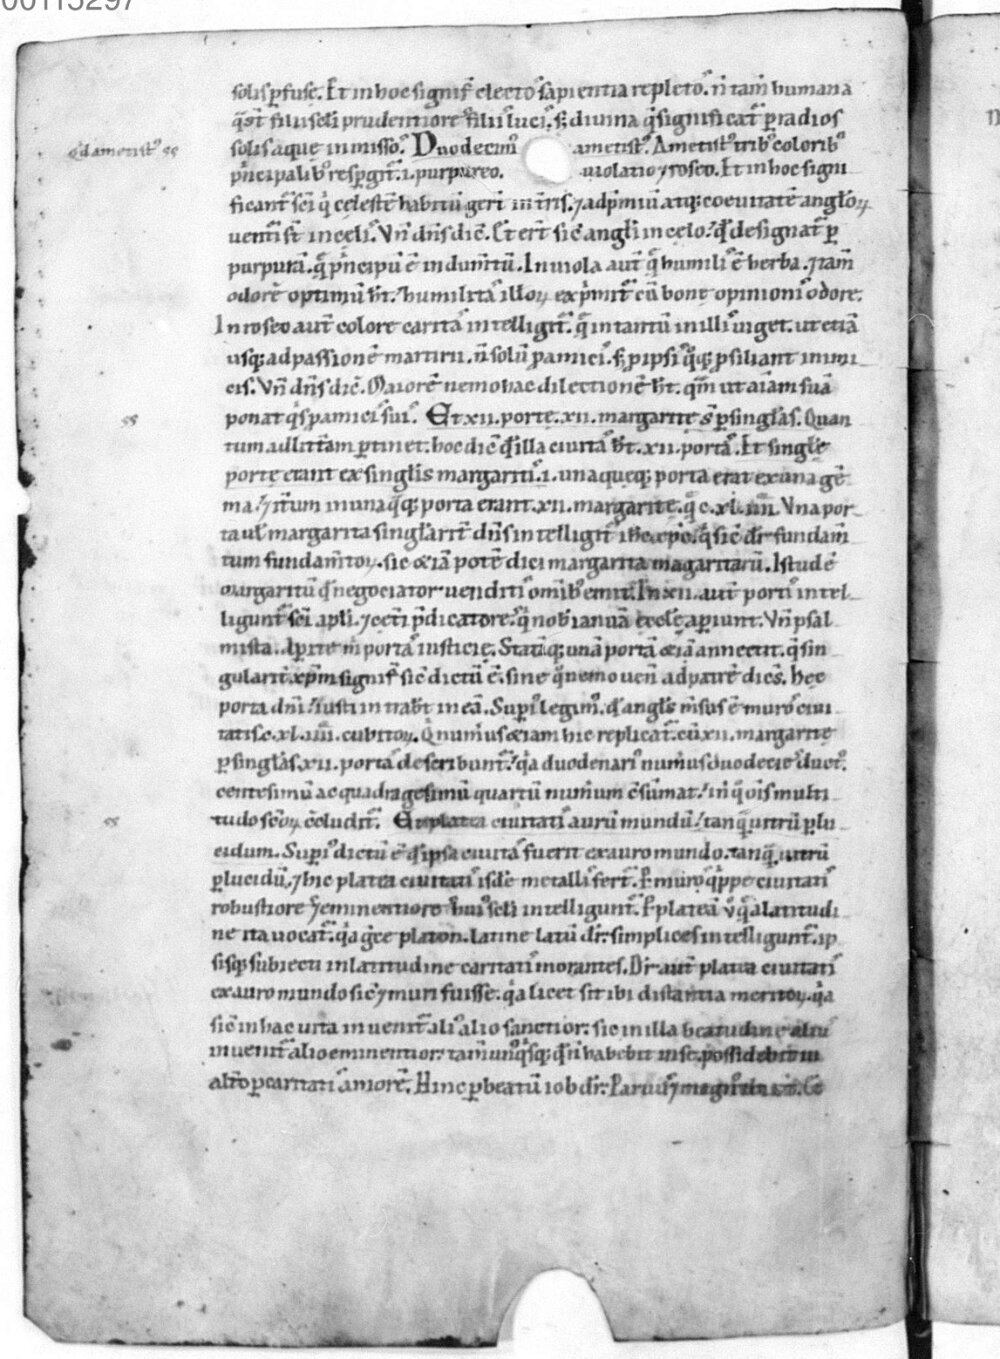 00115297
solis ꝑfuse. Et in hoc signif̄ electoꝰ sapientia repletoꝰ. n̄ tam̄ humana
q̄ st̄ filii seli prudentiore᷒ filii᷒ luci᷒. s; diuina q̄ significat᷒ ꝑ radios
qd ametist᷒
solis aque inmissoꝰ. Duodecim᷒ ametist᷒. Ametist᷒ trib᷒ colorib᷒
pͥncipalib᷒ respgit᷒ .i. purpureo. uiolatio ⁊ roseo. Et in hoc signi
ficant᷒ sc̄i qͥ celestē habitū geri in tr̄is. ⁊ ad p̄miū atq; coeuitatē angl̄oꝝ
uent̄i st̄ in celi᷒. Vn̄ dn̄s dic̄. Et er̄t sic̄ angl̄i in celo. qd̓ designat᷒ ꝑ
purpurā. q̄ pͥncipū ē indum̄tū. In uiola aut̄ q̄ humili᷒ ē herba. ⁊ tam̄
odorē optimū ht̄. humilitā᷒ illoꝝ exp̄mit᷒ cū bone opinioni᷒ odore.
In roseo aut̄ colore caritā᷒ intelligit᷒. q̄ in tantū in illi᷒ uiget. ut etiā
usq; ad passionē martirii. n̄ solū ꝓ amici᷒. s; ꝓ ipsi᷒ q̄q; ꝓsiliant inimi
cis. Vn̄ dn̄s dic̄. Maiorē nemo hac dilectionē ht̄. qm̄ ut aīam suā
ponat qͥs ꝓ amici᷒ sui᷒. Et xii. porte. xii. margarite s̄ ꝑ singl̄as. Quan
tum ad lit̄tam ꝑtinet. hoc dic̄ qd̓ illa ciuitā᷒ ht̄ .xii. portā᷒. Et singl̄e
porte erant ex singl̄is margariti᷒ .i. unaqueq; porta erat ex una gē
ma. ⁊ it̄um in unaq̄q; porta erant .xii. margarite. q̄ c. xl. iiii. Vna por
ta ul̓ margarita singl̄arit̄ dn̄s intelligit᷒ ih̄c xp̄c. qͥ sic̄ dr̄ fundam̄
tum fundam̄toꝝ. sic ⁊iā potē dici margarita magaritarū. Istud ē
margaritū qd̓ negociator uenditi᷒ omīb᷒ emit. In xii. aut̄ porti᷒ intel
ligunt᷒ sc̄i apl̄i. ⁊ cet̄i p̄dicatore᷒. qͥ nob̄ ianuā eccl̄e aꝑiunt. Vn̄ psal
mista. Aꝑite m̄ portā᷒ iusticie. Statīq; unā portā ⁊iā annectit. q̄ sin
gularit̄ xp̄m signif̄ sic̄ dictū ē. sine q̄ nemo uen̄ ad patrē dicēs. hec
porta dn̄i. iusti intrabt̄ in eā. Supi᷒ legim᷒. qd̓ angl̄s m̄sus ē muroꝰ ciui
tatis c. xl. iiii. cubitoꝝ. Qͥ num̄us ⁊iam hic replicat᷒. cū xii. margarite
ꝑ singl̄as xii. portā᷒ describunt᷒. qͥa duodenari᷒ num̄us duodecie᷒ duct᷒.
centesimū ac quadragesimū quartū num̄um c̄sūmat. in q̄ ōis multi
tudo sc̄oꝝ c̄cludit᷒. Et platea ciuitati᷒ aurū mundū. tanq̄ uitrū plu
cidum. Supi᷒ dictū ē qd̓ ipsa ciuitā᷒ fuerit ex auro mundo. tanq̄ uitrū
ꝑlucidū. ⁊ hic platea ciuitati᷒ isdē metalli fert᷒. Ꝑ muroꝰ q̄ppe ciuitati᷒
robustiore᷒ ⁊ eminentiore᷒ hui᷒ seli intelligunt᷒. Ꝑ plateā u̓ q̄ a latitudi
ne ita uocat᷒. qͥa gͤce platon. latine latū dr̄. simplices intelligunt᷒. ip
sisq; subiecti in latitudine caritati᷒ morantes. Dr̄ aut̄ platea ciuitati᷒
ex auro mundo sic̄ ⁊ muri fuisse. qͥa licet sit ibi distantia meritoꝝ. qͥa
sic̄ in hac uita inuenit᷒ ali᷒ alio sanctior. sic in illa beatudine
inuenit᷒ alio eminentior. tam̄ unq̄sq; qd̓ n̄ habebit in se. possidebit in
alt̄o ꝑ caritati᷒ amorē. Hinc ꝑ beatū iob dr̄. Paruu᷒ ⁊ magn᷒ ibi st̄.